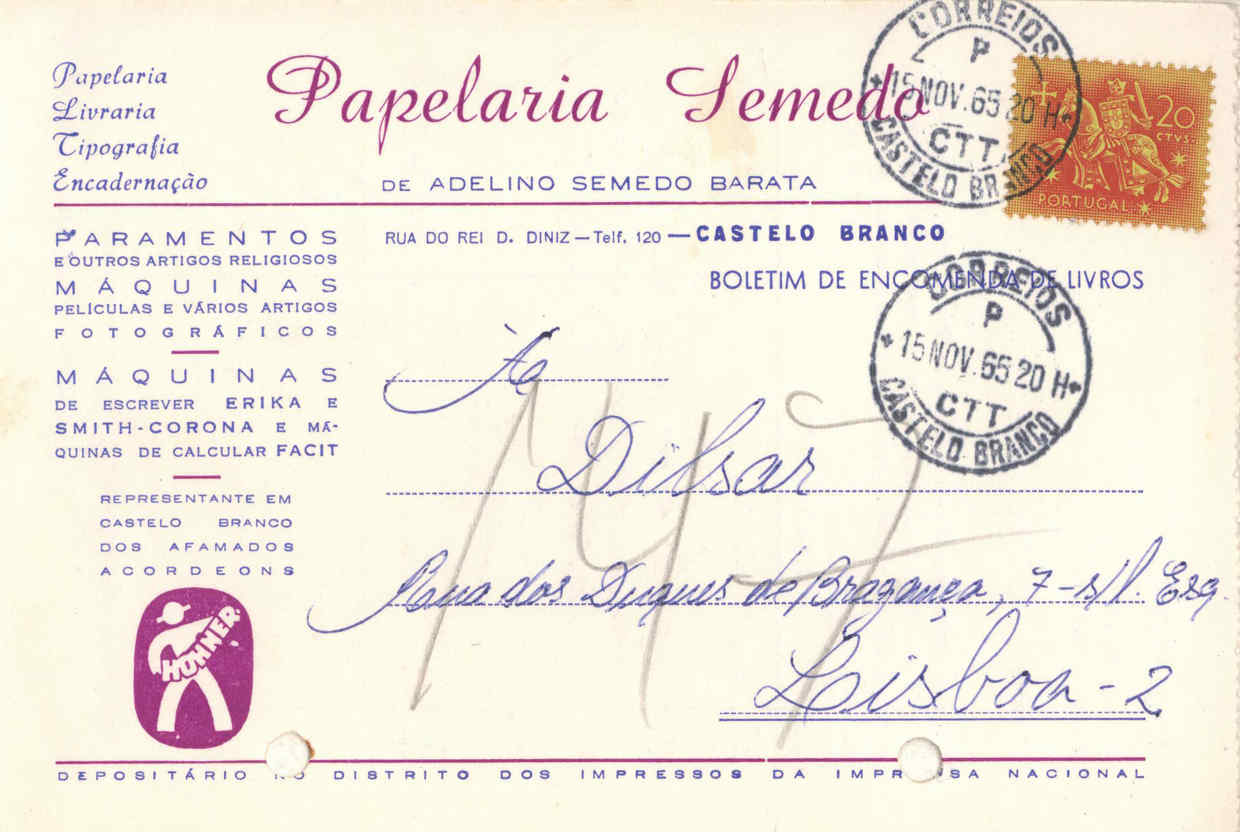 Papelaria
Livraria
Tipografia
Encadernação
Papelaria Semedo
DE ADELINO SEMEDO BARATA
CORREIOS
P
15 NOV. 65 20 H
CTT
CASTELO BRANCO
20
CTVS.
PORTUGAL
RUA DO REI D. DINIZ — Telf. 120 — CASTELO BRANCO
BOLETIM DE ENCOMENDA DE LIVROS
PARAMENTOS
E OUTROS ARTIGOS RELIGIOSOS
MÁQUINAS
PELICULAS E VÁRIOS ARTIGOS
FOTOGRÁFICOS
MÁQUINAS
DE ESCREVER ERIKA E
SMITH-CORONA E MÁ-
QUINAS DE CALCULAR FACIT
REPRESENTANTE EM
CASTELO BRANCO
DOS AFAMADOS
ACORDEONS
HOHNER
CORREIOS
P
15 NOV. 65 20 H
CTT
CASTELO BRANCO
À
Dilsar
Rua dos Duques de Bragança, 7-s/l. Esq.
Lisboa-2
DEPOSITÁRIO NO DISTRITO DOS IMPRESSOS DA IMPRENSA NACIONAL